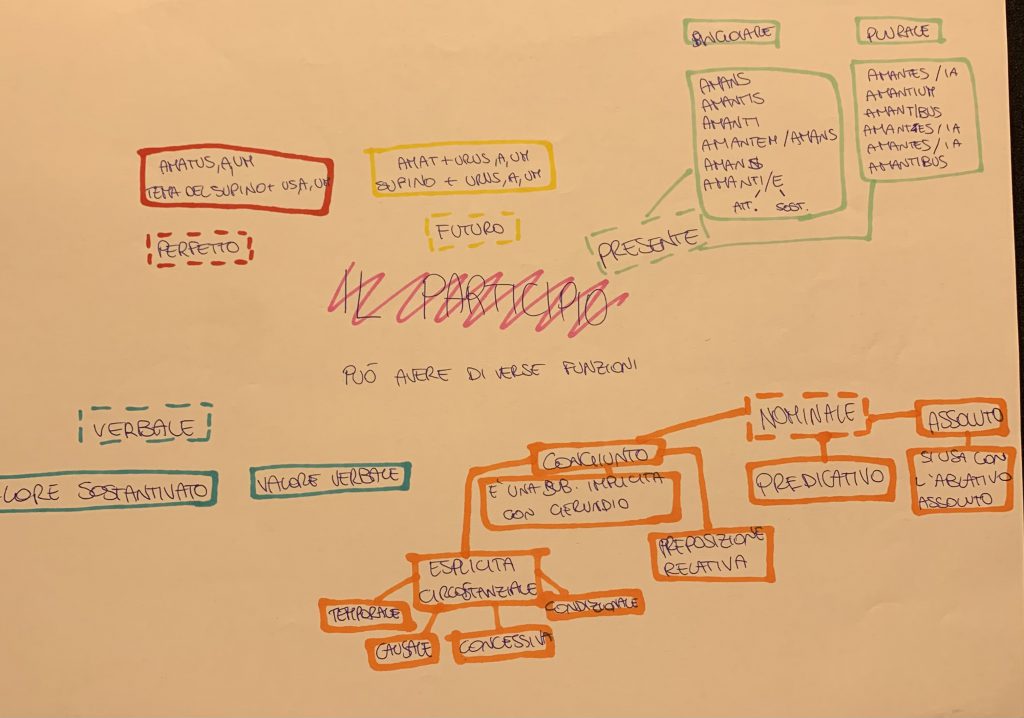 SINGOLARE
PLURALE
AMANS
AMANTIS
AMANTI
AMANTEM / AMANS
AMANS
AMANTI/E
ATT. SOST.
AMANTES / IA
AMANTIUM
AMANTIBUS
AMANTES / IA
AMANTES / IA
AMANTIBUS
AMATUS, A, UM
TEMA DEL SUPINO + US, A, UM
AMAT + URUS, A, UM
SUPINO + URUS, A, UM
PERFETTO
FUTURO
PRESENTE
IL PARTICIPIO
PUÒ AVERE DIVERSE FUNZIONI
VERBALE
NOMINALE
ALORE SOSTANTIVATO
VALORE VERBALE
CONGIUNTO
È UNA SUB. IMPLICITA
CON GERUNDIO
PREDICATIVO
ASSOLUTO
SI USA CON
L'ABLATIVO
ASSOLUTO
ESPLICITA
CIRCOSTANZIALE
PREPOSIZIONE
RELATIVA
TEMPORALE
CAUSALE
CONCESSIVA
CONDIZIONALE